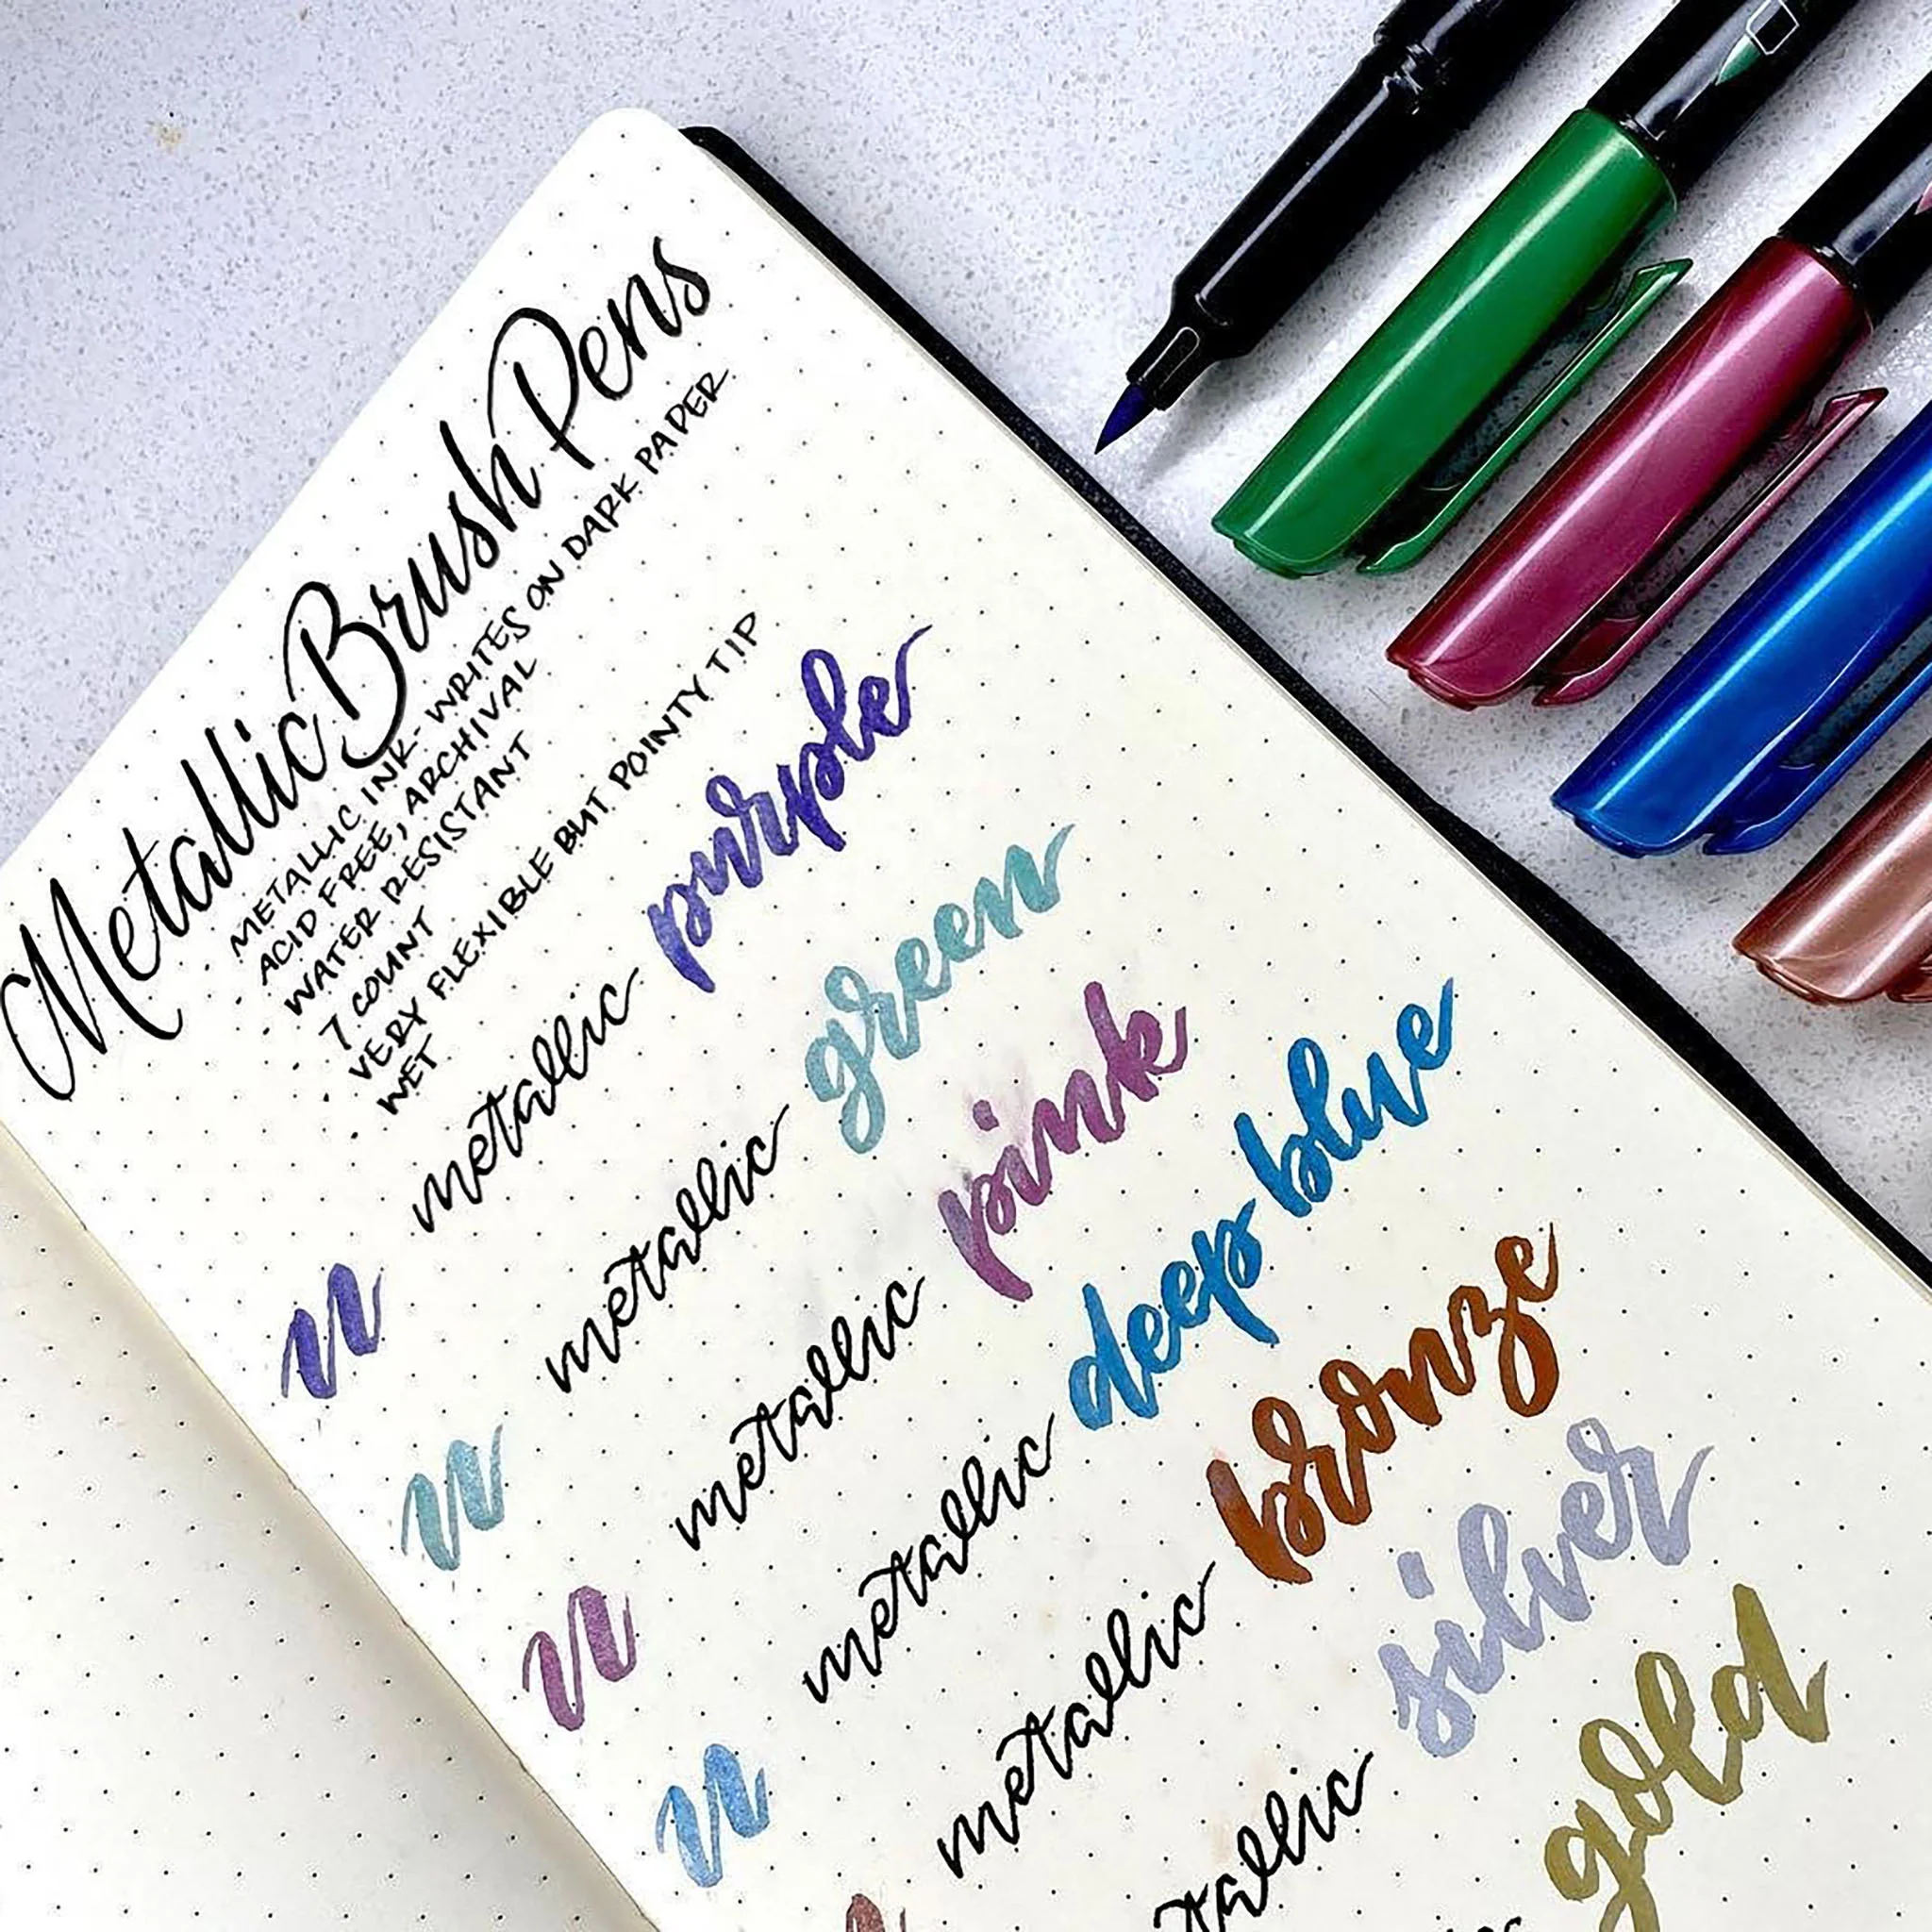 Metallic Brush Pens
METALLIC INK - WRITES ON DARK PAPER
ACID FREE, ARCHIVAL
WATER RESISTANT
7 COUNT
VERY FLEXIBLE BUT POINTY TIP
WET
metallic purple
metallic green
metallic pink
metallic deep blue
metallic bronze
silver
gold